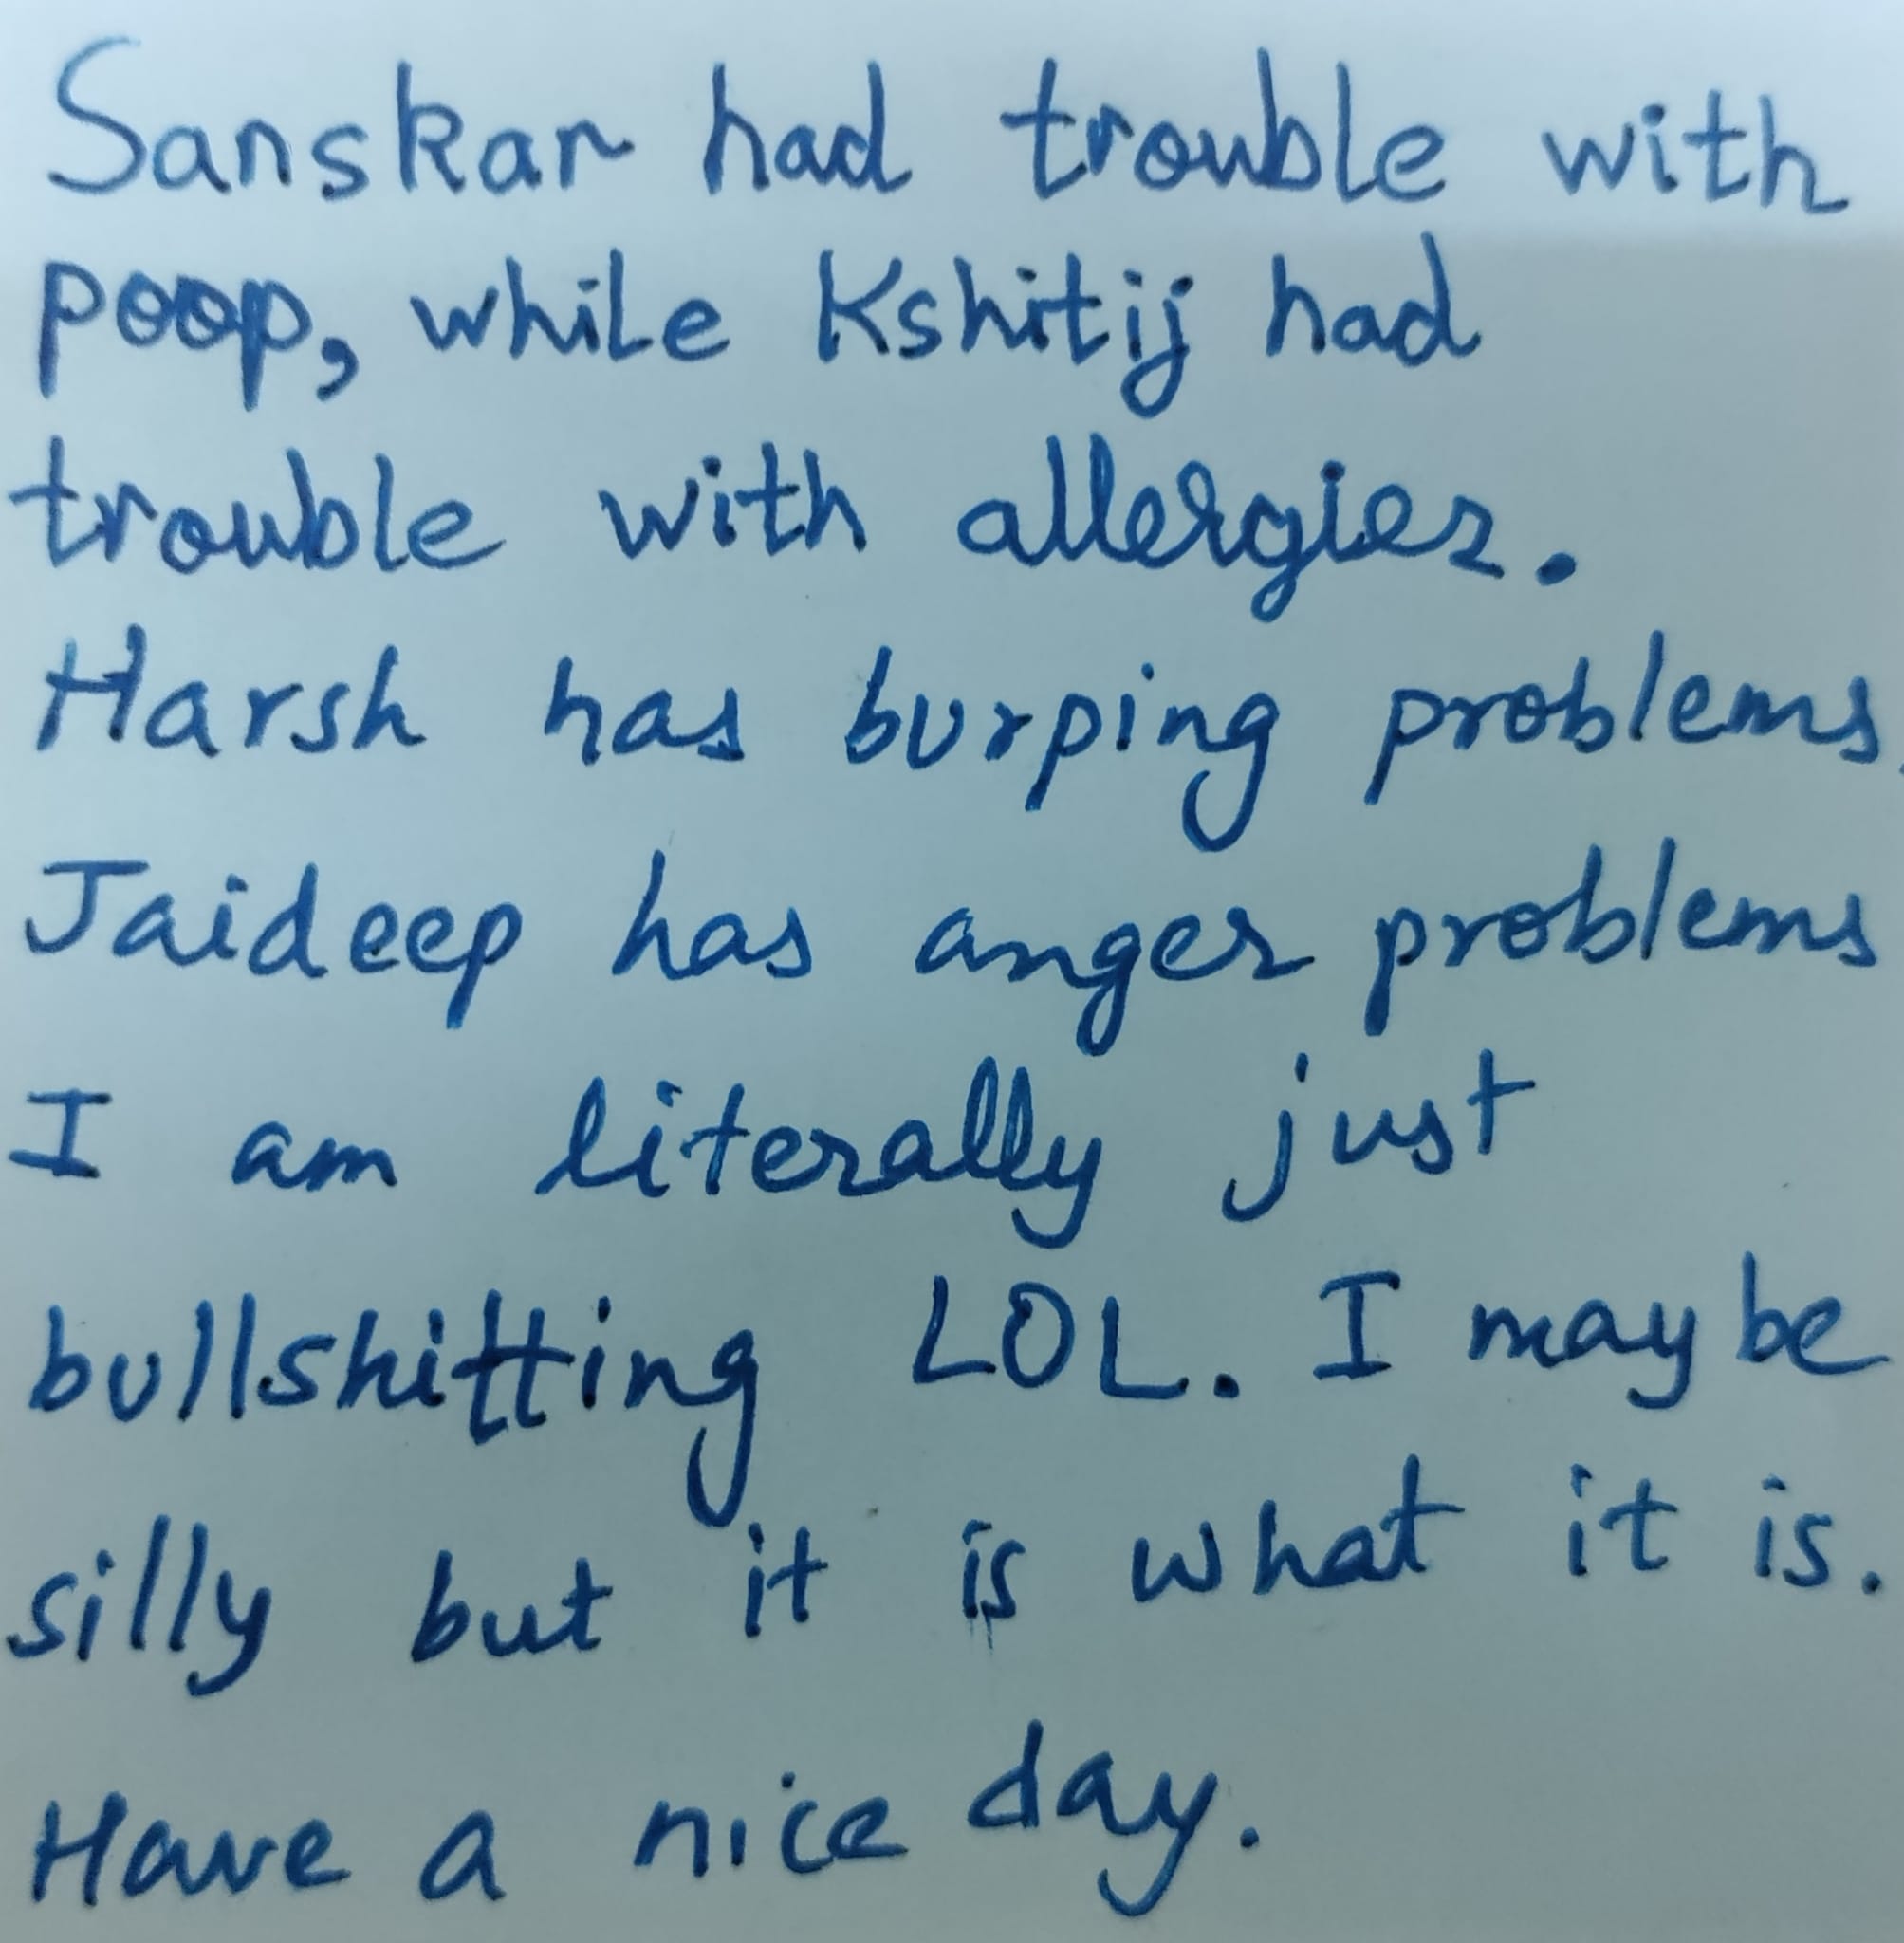 Sanskar had trouble with
poop, while Kshitij had
trouble with allergies.
Harsh has burping problems.
Jaideep has anger problems
I am literally just
bullshitting LOL. I may be
silly but it is what it is.
Have a nice day.